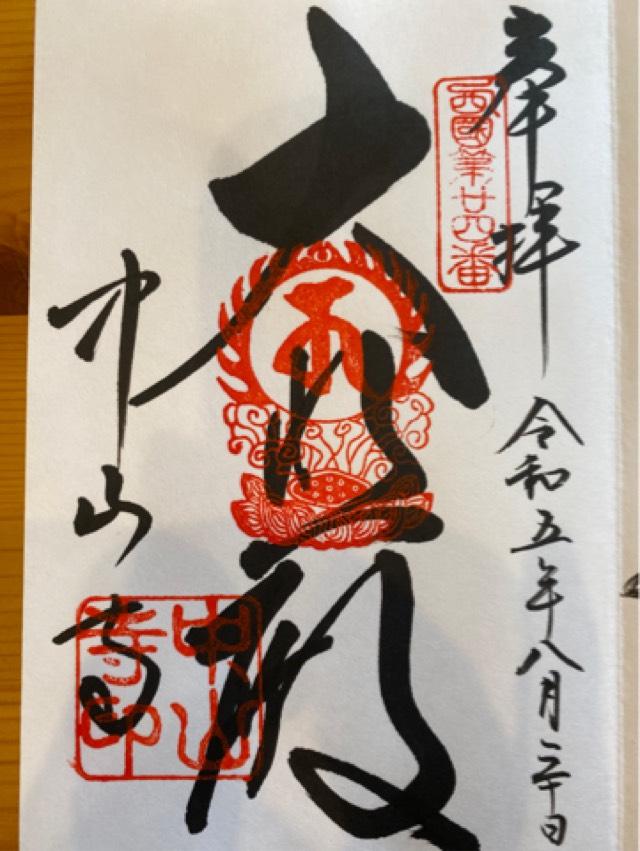 奉拝
令和五年八月二十日
西國第廿四番
大悲殿
中山寺
中山寺印